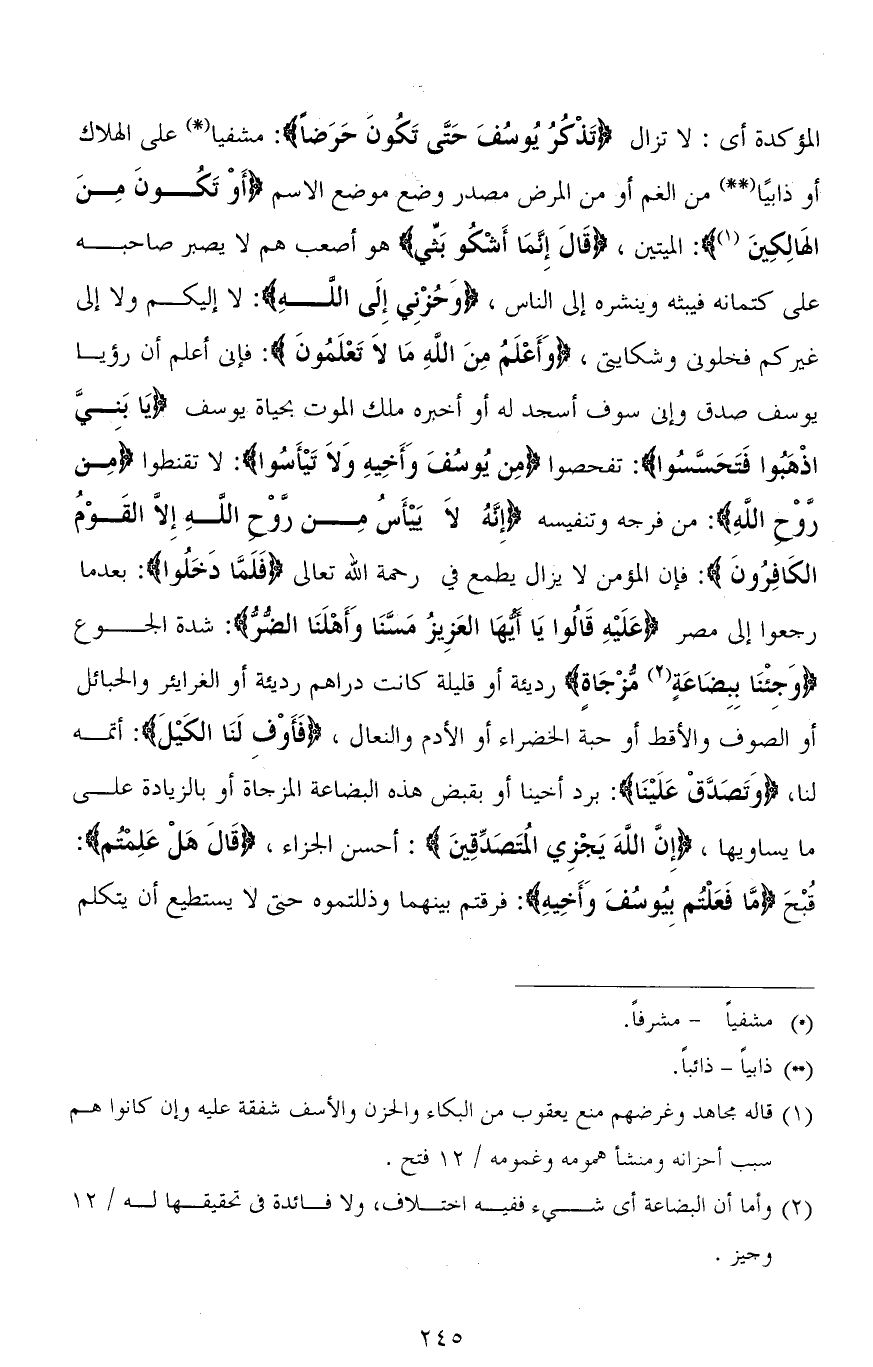 المؤكدة أى : لا تزال ﴿تَذْكُرُ يُوسُفَ حَتَّى تَكُونَ حَرَضاً﴾: مشفيا(*) على الهلاك
أو ذابيًا(**) من الغم أو من المرض مصدر وضع موضع الاسم ﴿أَوْ تَكُونَ مِنَ
الهَالِكِينَ (١)﴾: الميتين ، ﴿قَالَ إِنَّمَا أَشْكُو بَثِّي﴾ هو أصعب هم لا يصبر صاحبه
على كتمانه فيبثه وينشره إلى الناس ، ﴿وَحُزْنِي إِلَى اللَّهِ﴾: لا إليكم ولا إلى
غيركم فخلونى وشكايتى ، ﴿وَأَعْلَمُ مِنَ اللَّهِ مَا لاَ تَعْلَمُونَ ﴾: فإنى أعلم أن رؤيا
يوسف صدق وإنى سوف أسجد له أو أخبره ملك الموت بحياة يوسف ﴿يَا بَنِيَّ
اذْهَبُوا فَتَحَسَّسُوا﴾: تفحصوا ﴿مِن يُوسُفَ وَأَخِيهِ وَلاَ تَيْأَسُوا﴾: لا تقنطوا ﴿مِن
رَّوْحِ اللَّهِ﴾: من فرجه وتنفيسه ﴿إِنَّهُ لاَ يَيْأَسُ مِن رَّوْحِ اللَّهِ إِلاَّ القَوْمُ
الكَافِرُونَ ﴾: فإن المؤمن لا يزال يطمع في رحمة الله تعالى ﴿فَلَمَّا دَخَلُوا﴾: بعدما
رجعوا إلى مصر ﴿عَلَيْهِ قَالُوا يَا أَيُّهَا العَزِيزُ مَسَّنَا وَأَهْلَنَا الضُّرُّ﴾: شدة الجوع
﴿وَجِئْنَا بِبِضَاعَةٍ(٢) مُّزْجَاةٍ﴾ رديئة أو قليلة كانت دراهم رديئة أو الغرايئر والحبائل
أو الصوف والأقط أو حبة الخضراء أو الأدم والنعال ، ﴿فَأَوْفِ لَنَا الكَيْلَ﴾: أتمه
لنا، ﴿وَتَصَدَّقْ عَلَيْنَا﴾: برد أخينا أو بقبض هذه البضاعة المزجاة أو بالزيادة على
ما يساويها ، ﴿إِنَّ اللَّهَ يَجْزِي المُتَصَدِّقِينَ ﴾ : أحسن الجزاء ، ﴿قَالَ هَلْ عَلِمْتُم﴾:
قُبْحَ ﴿مَّا فَعَلْتُم بِيُوسُفَ وَأَخِيهِ﴾: فرقتم بينهما وذللتموه حتى لا يستطيع أن يتكلم
(*) مشفياً - مشرفاً.
(**) ذابياً - ذائباً.
(١) قاله مجاهد وغرضهم منع يعقوب من البكاء والحزن والأسف شفقة عليه وإن كانوا هم
سبب أحزانه ومنشأ همومه وغمومه / ١٢ فتح .
(٢) وأما أن البضاعة أى شىء ففيه اختلاف، ولا فائدة فى تحقيقها له / ١٢
وجيز .
٢٤٥